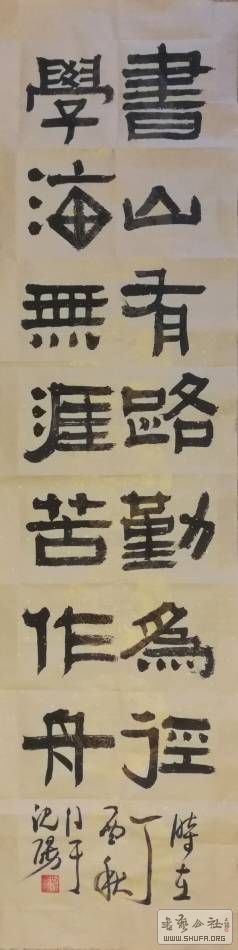 書山有路勤為徑
學海無涯苦作舟
時在
丁酉秋
月于
沈陽
書藝公社
WWW.SHUFA.ORG